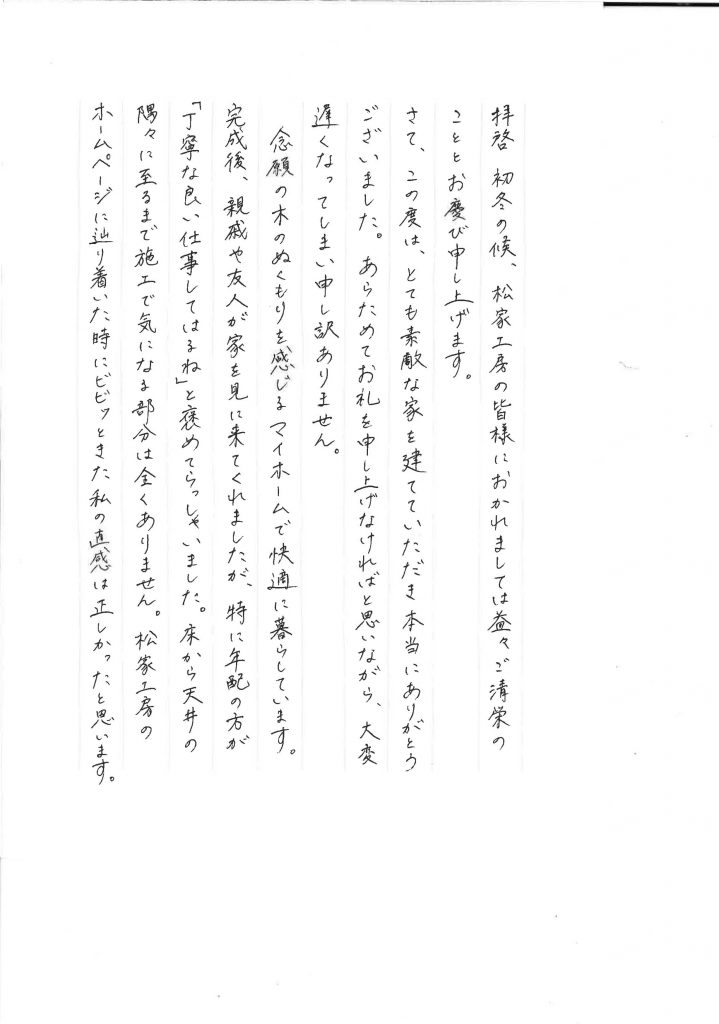 拝啓 初冬の候、松家工房の皆様におかれましては益々ご清栄の
こととお慶び申し上げます。
さて、この度は、とても素敵な家を建てていただき本当にありがとう
ございました。あらためてお礼を申し上げなければと思いながら、大変
遅くなってしまい申し訳ありません。
念願の木のぬくもりを感じるマイホームで快適に暮らしています。
完成後、親戚や友人が家を見に来てくれましたが、特に年配の方が
「丁寧な良い仕事してはるね」と褒めてらっしゃいました。床から天井の
隅々に至るまで施工で気になる部分は全くありません。松家工房の
ホームページに辿り着いた時にビビッときた私の直感は正しかったと思います。